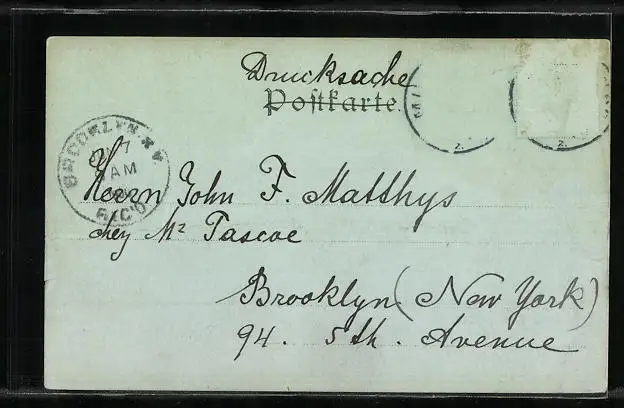 Drucksache
Postkarte
BROOKLYN. N.Y.
7
AM
REC'D.
Herrn John F. Matthys
chez Mr Pascoe
Brooklyn (New York)
94. 5th. Avenue